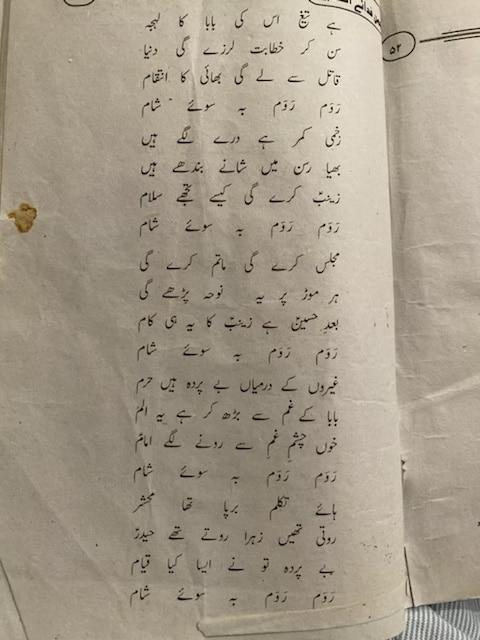 ۵۲
ہے تیغ اس کی بابا کا لہجہ
سن کر خطابت لرزے گی دنیا
قاتل سے لے گی بھائی کا انتقام
رَوَم رَوَم بہ سوئے شام
زخمی کمر ہے درے لگے ہیں
بھیا رسن میں شانے بندھے ہیں
زینبؑ کرے گی کیسے تجھے سلام
رَوَم رَوَم بہ سوئے شام
مجلس کرے گی ماتم کرے گی
ہر موڑ پر یہ نوحہ پڑھے گی
بعدِ حسینؑ ہے زینبؑ کا یہ ہی کام
رَوَم رَوَم بہ سوئے شام
غیروں کے درمیاں بے پردہ ہیں حرم
بابا کے غم سے بڑھ کر ہے یہ الم
خوں چشمِ غم سے رونے لگے امامؑ
رَوَم رَوَم بہ سوئے شام
ہائے تکلم برپا تھا محشر
روتی تھیں زہرا روتے تھے حیدرؑ
بے پردہ تو نے ایسا کیا قیام
رَوَم رَوَم بہ سوئے شام